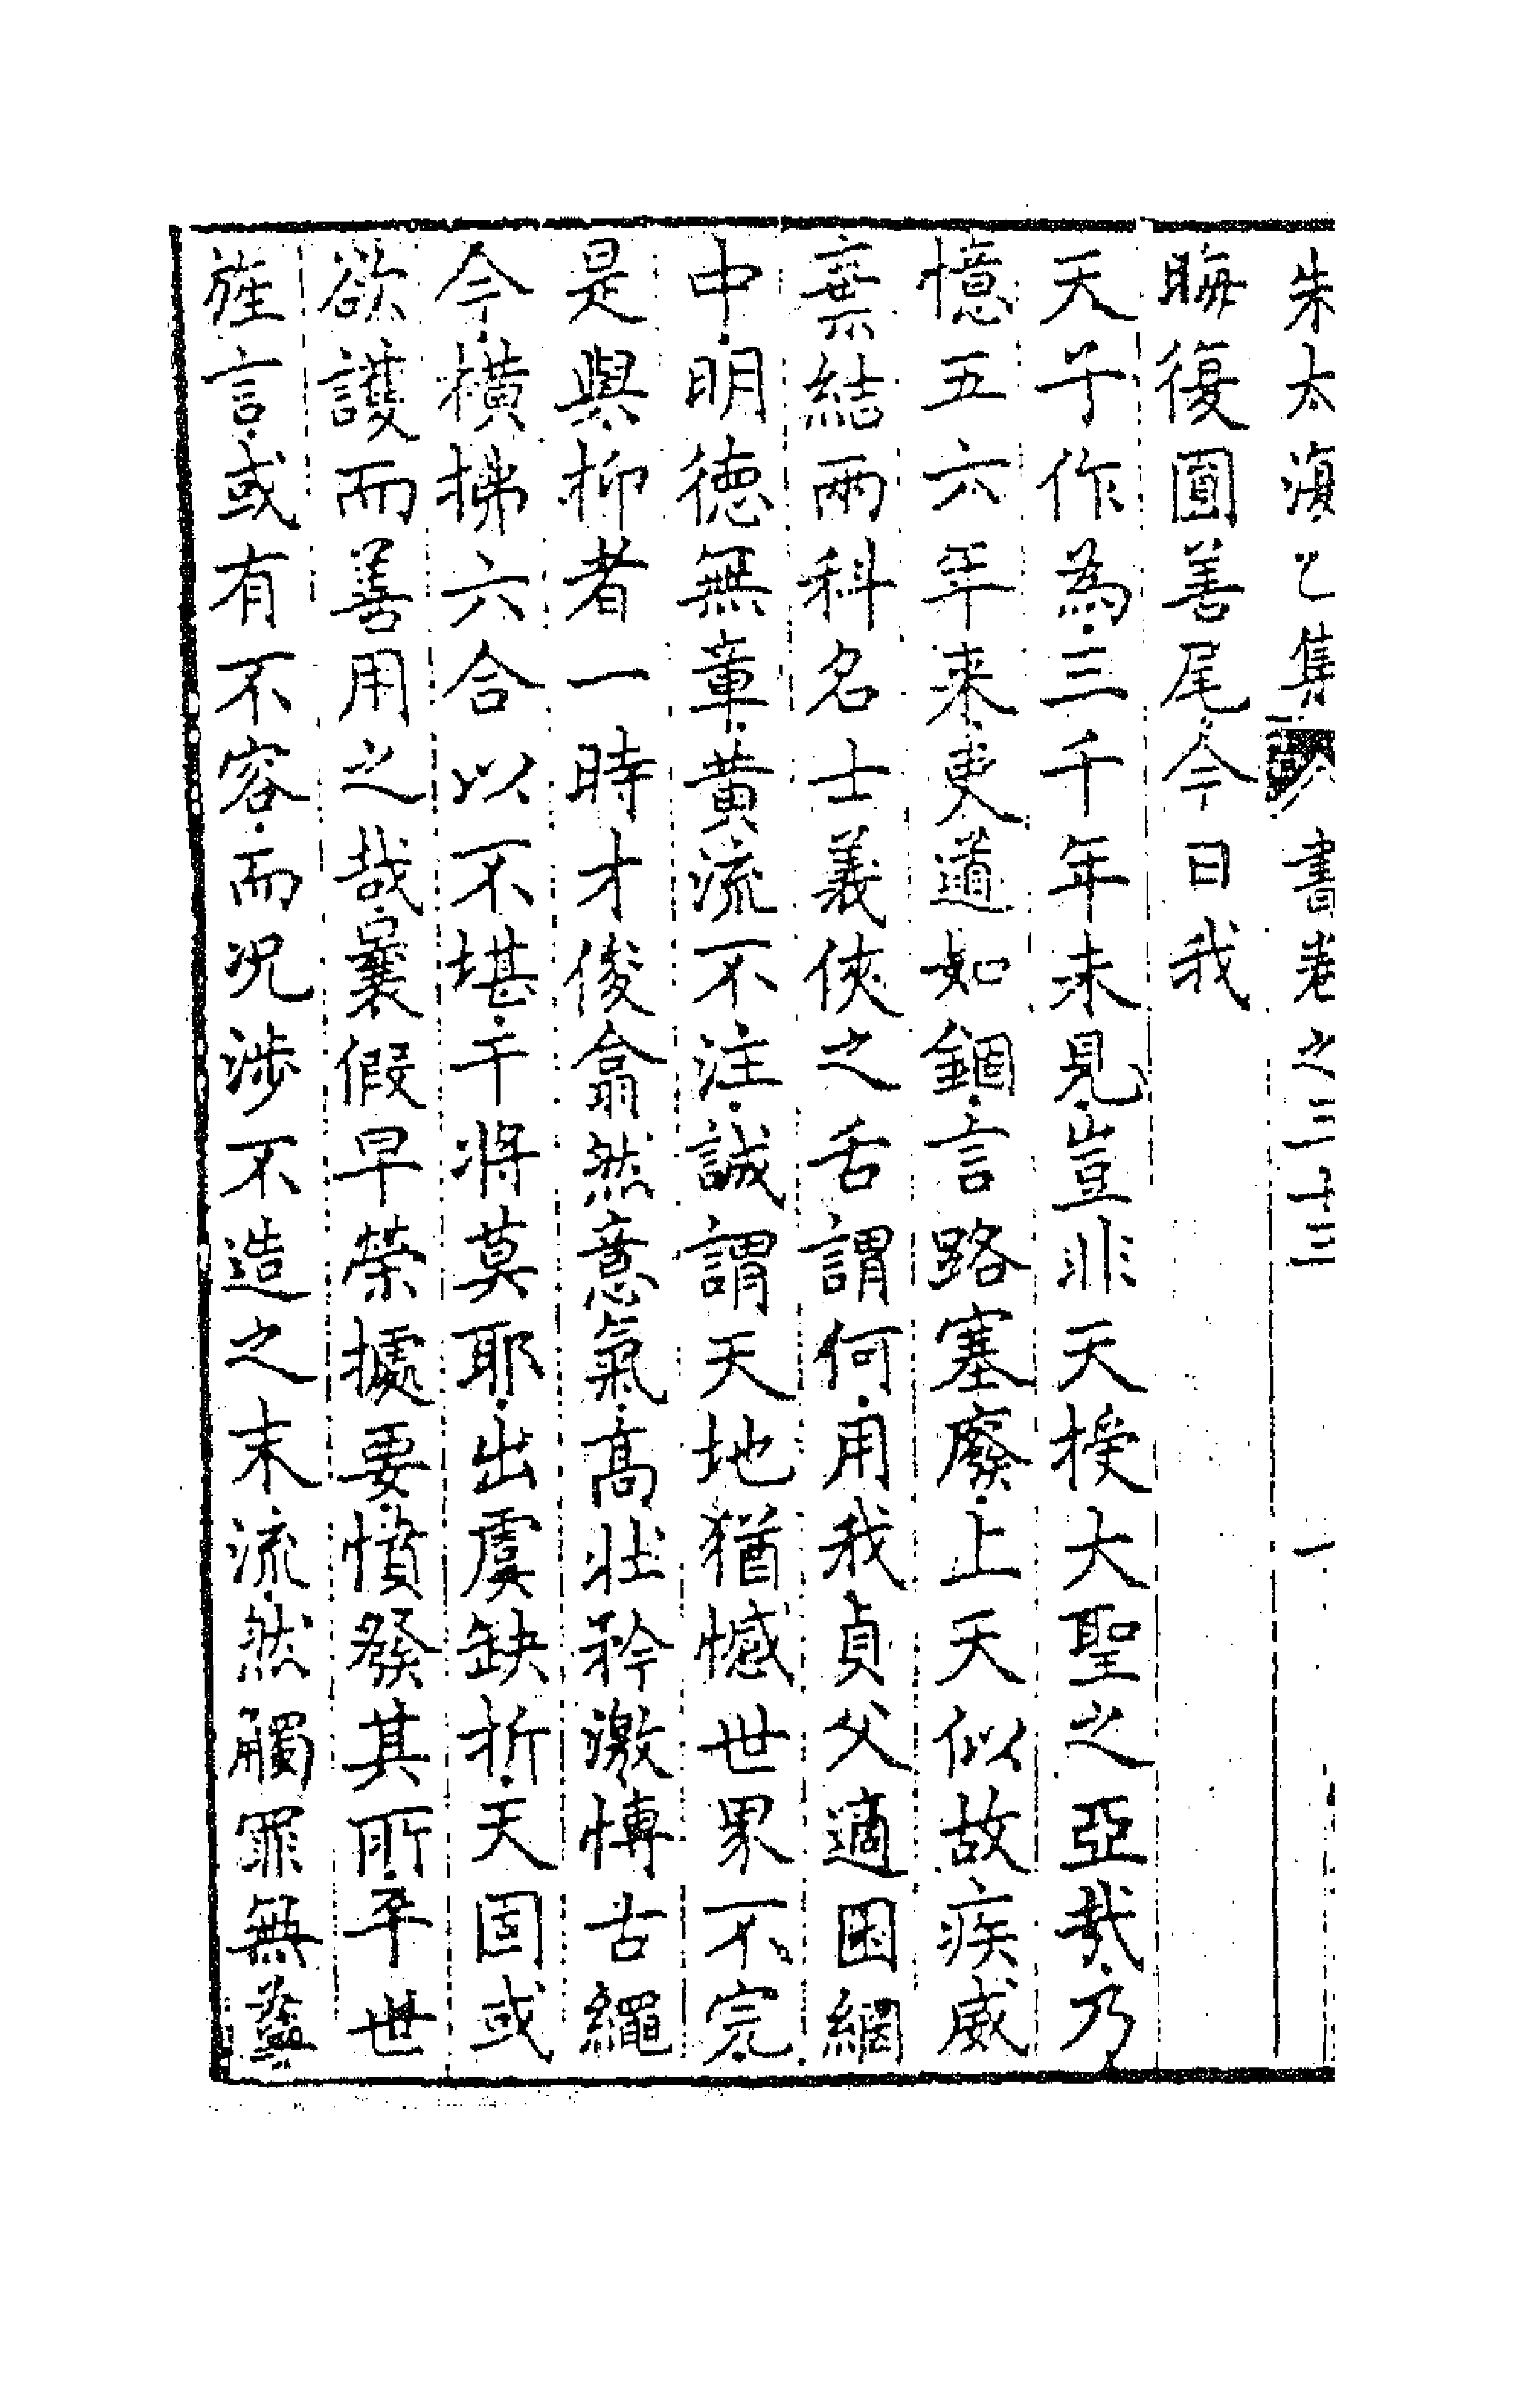 朱太復乙集 書卷之三十三 一
晦復圓善尾今日我
天子作為三千年未見豈非天授大聖之亞哉乃
憶五六年来吏道如錮言路塞廢上天似故疾威
棄結兩科名士義俠之舌謂何用我貞父適困網
中明德無章黄流不注誠謂天地猶憾世界不完
是與抑者一時才俊翕然意氣高壯矜激慱古繩
今橫拂六合以不堪干將莫耶出虞缺折天固或
欲護而善用之哉曩假早榮據要憤發其所平世
旌言或有不容而况涉不造之末流然觸罪無